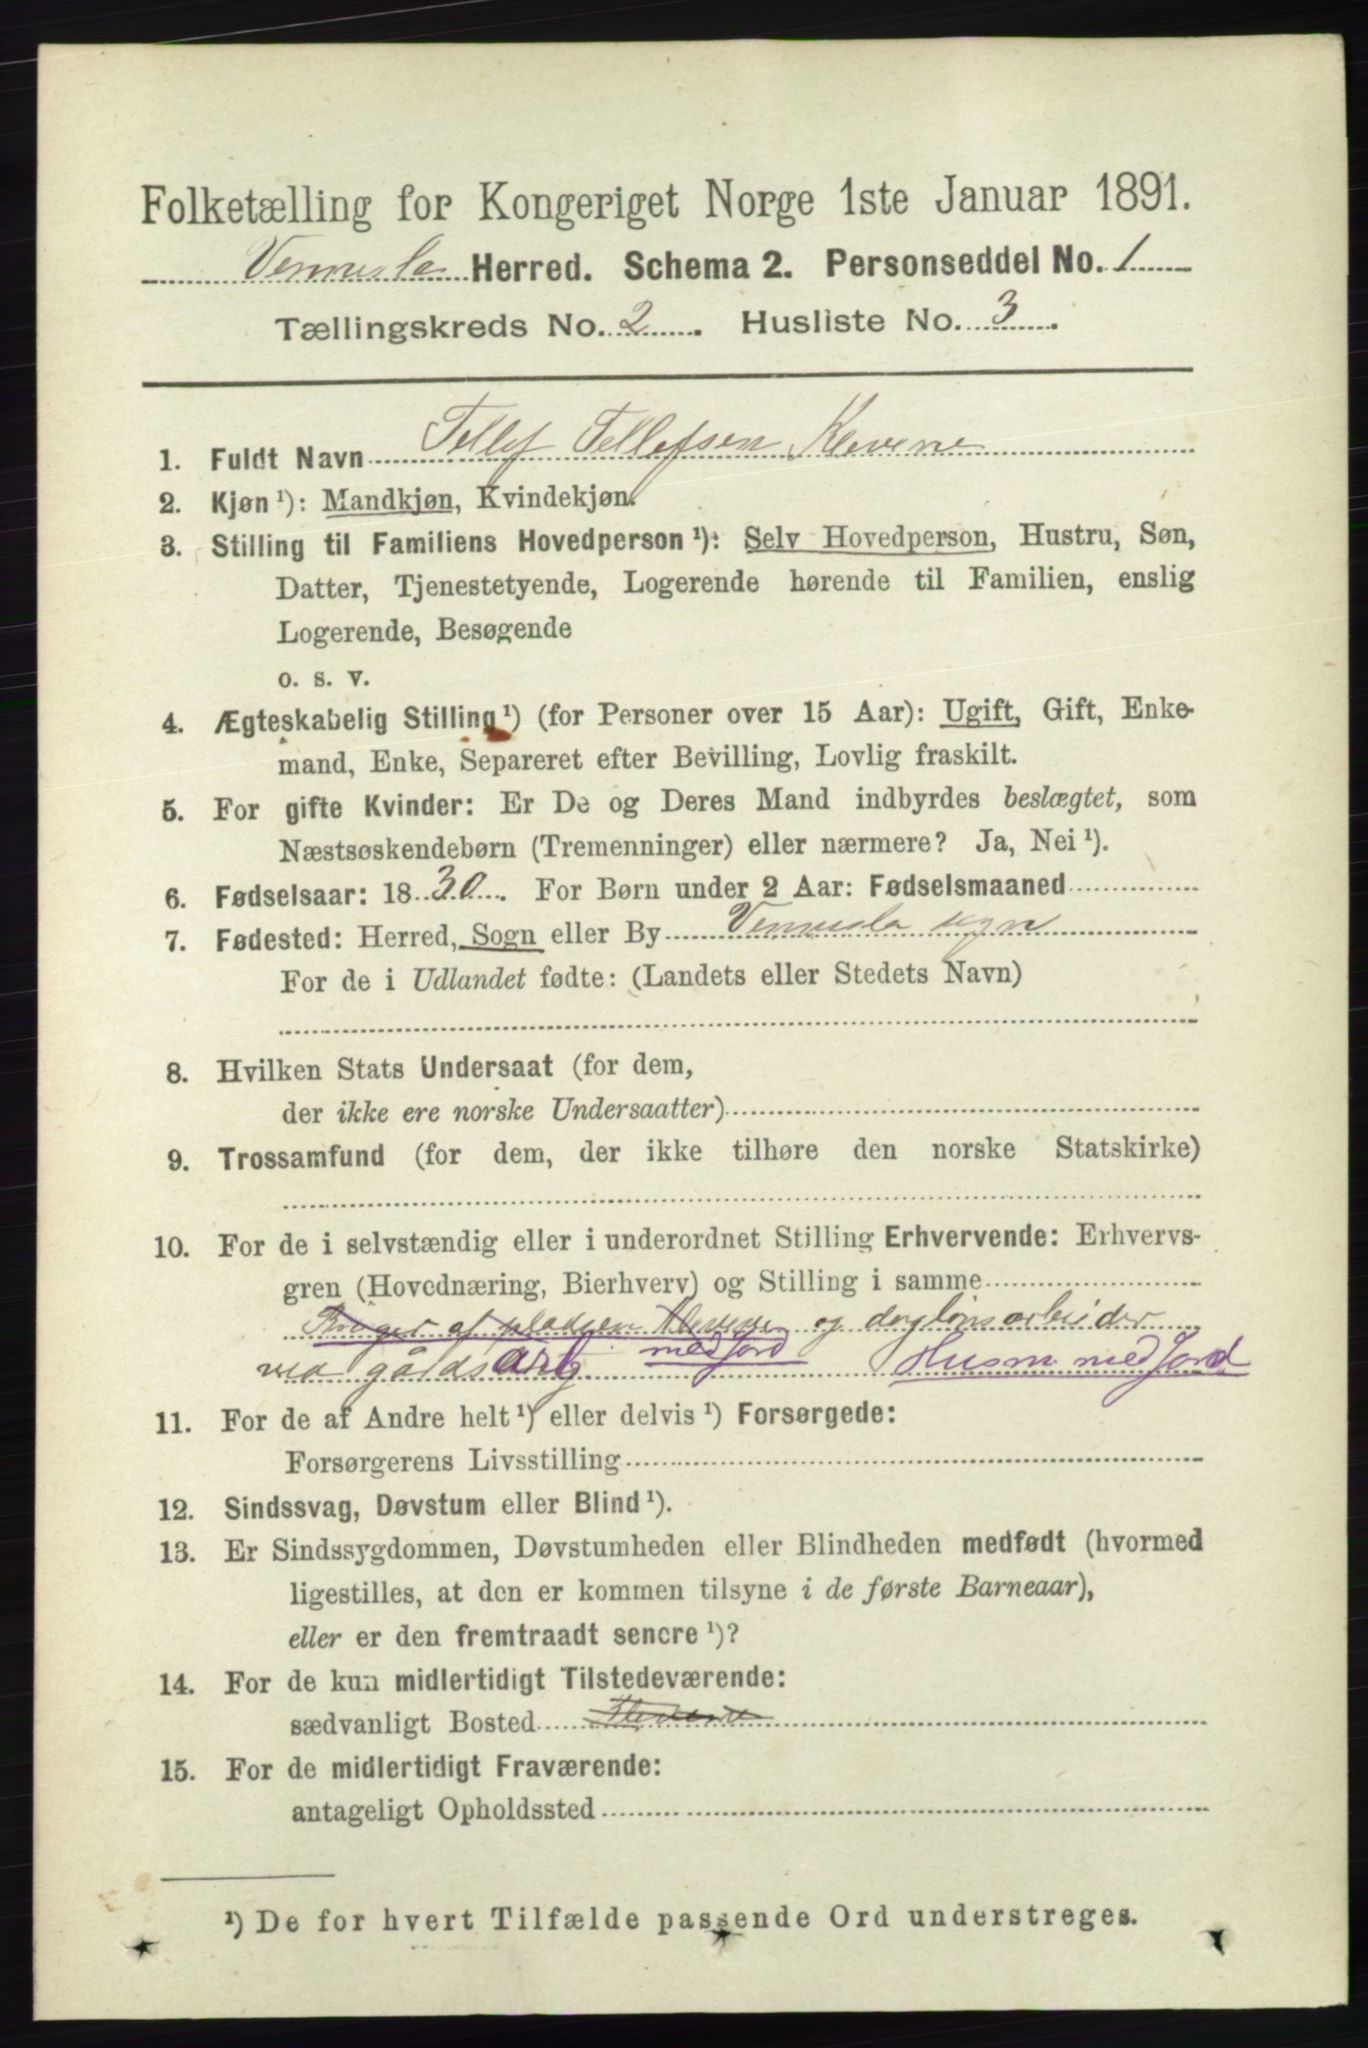 Folketælling for Kongeriget Norge 1ste Januar 1891.
Vennesla Herred. Schema 2. Personseddel No. 1
Tællingskreds No. 2. Husliste No. 3.
1. Fuldt Navn Tellef Tellefsen Klevene
2. Kjøn ¹): Mandkjøn, Kvindekjøn.
3. Stilling til Familiens Hovedperson ¹): Selv Hovedperson, Hustru, Søn,
Datter, Tjenestetyende, Logerende hørende til Familien, enslig
Logerende, Besøgende
o. s. v.
4. Ægteskabelig Stilling ¹) (for Personer over 15 Aar): Ugift, Gift, Enke-
mand, Enke, Separeret efter Bevilling, Lovlig fraskilt.
5. For gifte Kvinder: Er De og Deres Mand indbyrdes beslægtet, som
Næstsøskendebørn (Tremenninger) eller nærmere? Ja, Nei ¹).
6. Fødselsaar: 1830. For Børn under 2 Aar: Fødselsmaaned
7. Fødested: Herred, Sogn eller By Vennesla sogn
For de i Udlandet fødte: (Landets eller Stedets Navn)
8. Hvilken Stats Undersaat (for dem,
der ikke ere norske Undersaatter)
9. Trossamfund (for dem, der ikke tilhøre den norske Statskirke)
10. For de i selvstændig eller i underordnet Stilling Erhvervende: Erhvervs-
gren (Hovednæring, Bierhverv) og Stilling i samme
Bruger af pladsen Klevene og daglønsarbeider
ved gårdsarb. med Jord Husm. med Jord
11. For de af Andre helt ¹) eller delvis ¹) Forsørgede:
Forsørgerens Livsstilling
12. Sindssvag, Døvstum eller Blind ¹).
13. Er Sindssygdommen, Døvstumheden eller Blindheden medfødt (hvormed
ligestilles, at den er kommen tilsyne i de første Barneaar),
eller er den fremtraadt senere ¹)?
14. For de kun midlertidigt Tilstedeværende:
sædvanligt Bosted
15. For de midlertidigt Fraværende:
antageligt Opholdssted
¹) De for hvert Tilfælde passende Ord understreges.